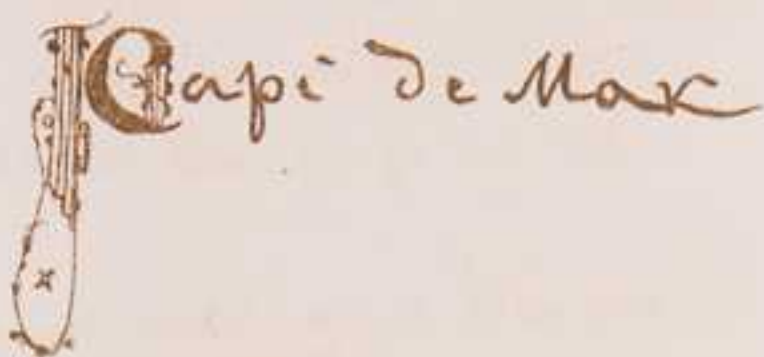 Capi de Mak